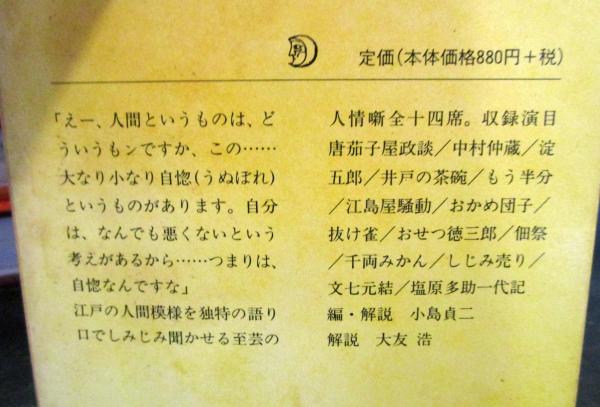 定価(本体価格880円+税)
「えー、人間というものは、ど
ういうもンですか、この……
大なり小なり自惚(うぬぼれ)
というものがあります。自分
は、なんでも悪くないという
考えがあるから……つまりは、
自惚なんですな」
江戸の人間模様を独特の語り
口でしみじみ聞かせる至芸の
人情噺全十四席。収録演目
唐茄子屋政談/中村仲蔵/淀
五郎/井戸の茶碗/もう半分
/江島屋騒動/おかめ団子/
抜け雀/おせつ徳三郎/佃祭
/千両みかん/しじみ売り/
文七元結/塩原多助一代記
編・解説 小島貞二
解説 大友 浩